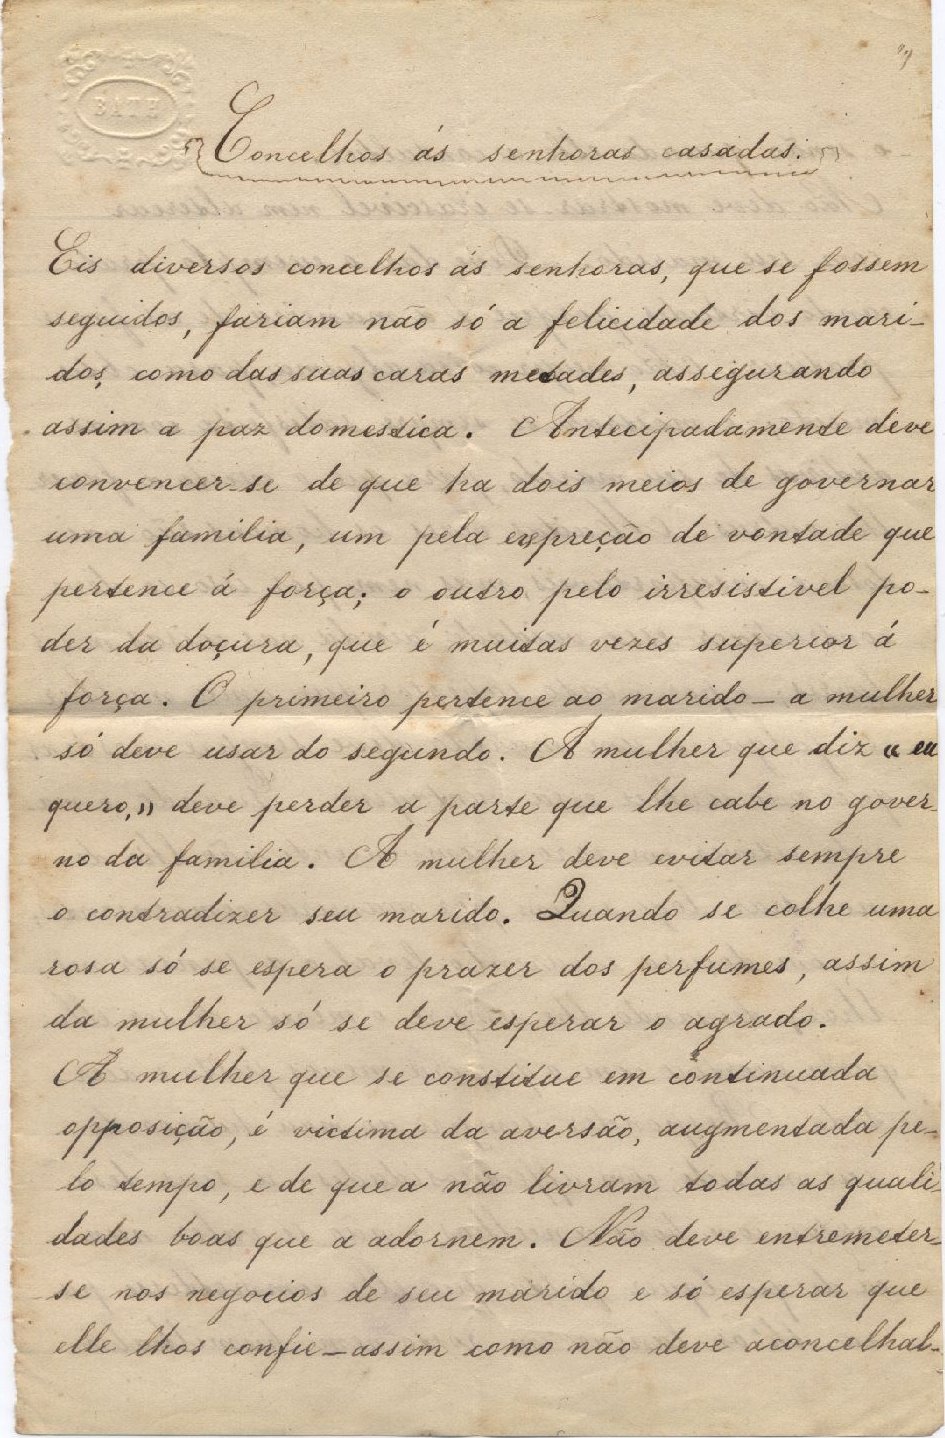 BATH
Concelhos ás senhoras casadas.
Eis diversos concelhos ás senhoras, que se fossem
seguidos, fariam não só a felicidade dos mari-
dos, como das suas caras metades, assegurando
assim a paz domestica. Antecipadamente deve
convencer-se de que ha dois meios de governar
uma familia, um pela expreção de vontade que
pertence á força; o outro pelo irresistivel po-
der da doçura, que é muitas vezes superior á
força. O primeiro pertence ao marido - a mulher
só deve usar do segundo. A mulher que diz "eu
quero," deve perder a parte que lhe cabe no gover-
no da familia. A mulher deve evitar sempre
o contradizer seu marido. Quando se colhe uma
rosa só se espera o prazer dos perfumes, assim
da mulher só se deve esperar o agrado.
A mulher que se constitue em continuada
opposição, é victima da aversão, augmentada pe-
lo tempo, e de que a não livram todas as quali-
dades boas que a adornem. Não deve entremeter-
se nos negocios de seu marido e só esperar que
elle lhos confie - assim como não deve aconcelhal-